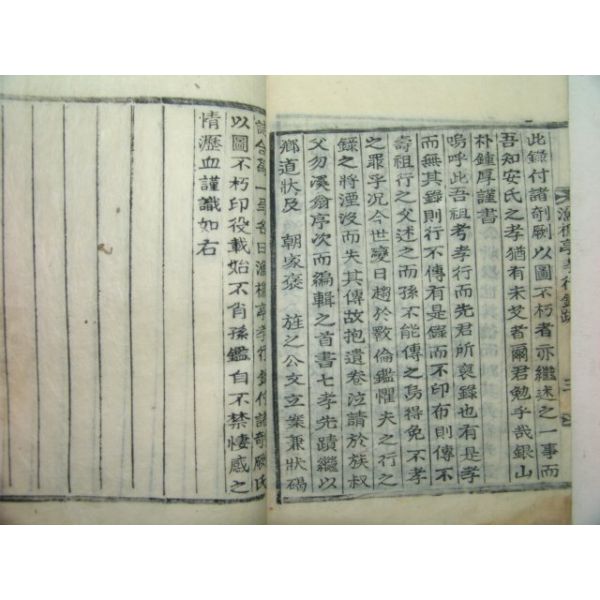 漁樵亭孝行錄跋
三
此錄付諸剞劂以圖不朽者亦繼述之一事而
吾知安氏之孝猶有未艾者爾君勉乎哉銀山
朴鍾厚謹書
嗚呼此吾祖考孝行而先君所裒錄也有是孝
而無其錄則行不傳有是錄而不印布則傳不
壽祖行之父述之而孫不能傳之烏得免不孝
之罪乎況今世變日趨於斁倫鑑懼夫之行之
錄之將湮沒而失其傳故抱遺卷泣請於族叔
父勿溪翁序次而編輯之首書七孝先蹟繼以
鄉道狀及 朝家褒 旌之公文立案兼狀碣
誌合爲一冊名曰漁樵亭孝行錄付諸剞劂氏
以圖不朽印役載始不肖孫鑑自不禁悽感之
情瀝血謹識如右